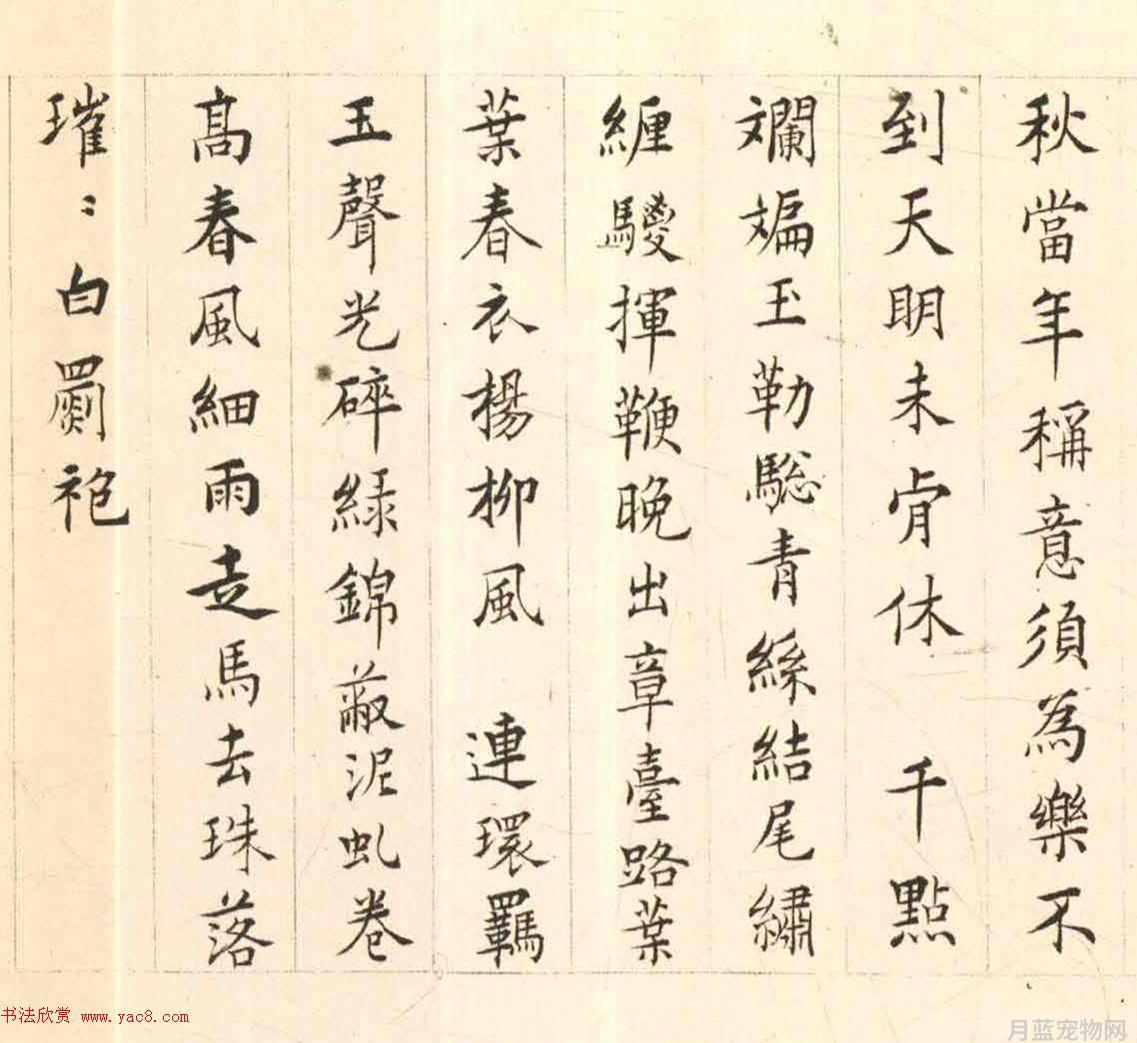 秋當年稱意須為樂不
到天明未肯休　千點
斓斒玉勒驄青絲結尾繡
纏騣揮鞭晚出章臺路葉
葉春衣楊柳風　連環羈
玉聲光碎綠錦蔽泥虬卷
髙春風細雨走馬去珠落
璀〻白罽袍
书法欣赏 www.yac8.com
月蓝宠物网